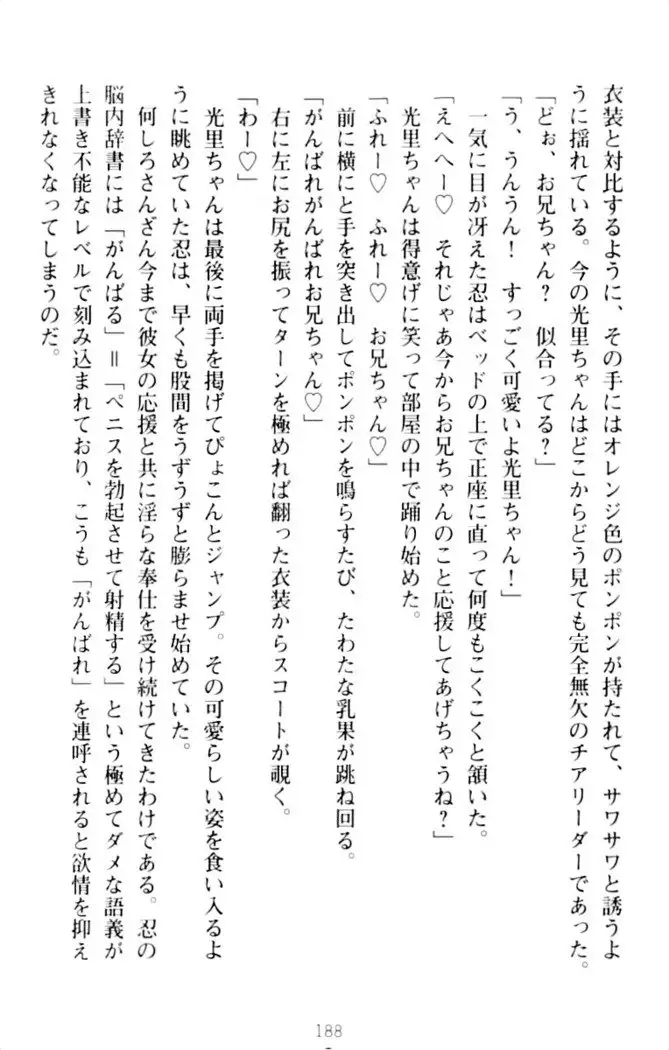 衣装と対比するように、その手にはオレンジ色のポンポンが持たれて、サワサワと誘うよ
うに揺れている。今の光里ちゃんはどこからどう見ても完全無欠のチアリーダーであった。
「どぉ、お兄ちゃん？　似合ってる？」
「う、うんうん！　すっごく可愛いよ光里ちゃん！」
一気に目が冴えた忍はベッドの上で正座に直って何度もこくこくと頷いた。
「えへへー♡　それじゃあ今からお兄ちゃんのこと応援してあげちゃうね？」
光里ちゃんは得意げに笑って部屋の中で踊り始めた。
「ふれー♡　ふれー♡　お兄ちゃん♡」
前に横にと手を突き出してポンポンを鳴らすたび、たわたな乳果が跳ね回る。
「がんばれがんばれお兄ちゃん♡」
右に左にお尻を振ってターンを極めれば翻った衣装からスコートが覗く。
「わー♡」
光里ちゃんは最後に両手を掲げてぴょこんとジャンプ。その可愛らしい姿を食い入るよ
うに眺めていた忍は、早くも股間をうずうずと膨らませ始めていた。
何しろさんざん今まで彼女の応援と共に淫らな奉仕を受け続けてきたわけである。忍の
脳内辞書には「がんばる」＝「ペニスを勃起させて射精する」という極めてダメな語義が
上書き不能なレベルで刻み込まれており、こうも「がんばれ」を連呼されると欲情を抑え
きれなくなってしまうのだ。
188